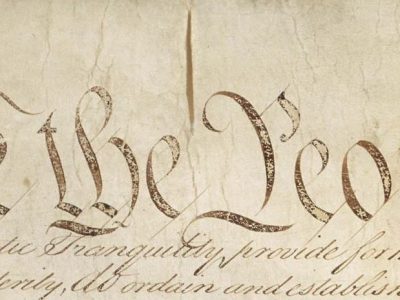 e the Peo
tic Tranquility, provide for
terity, do ordain and establis